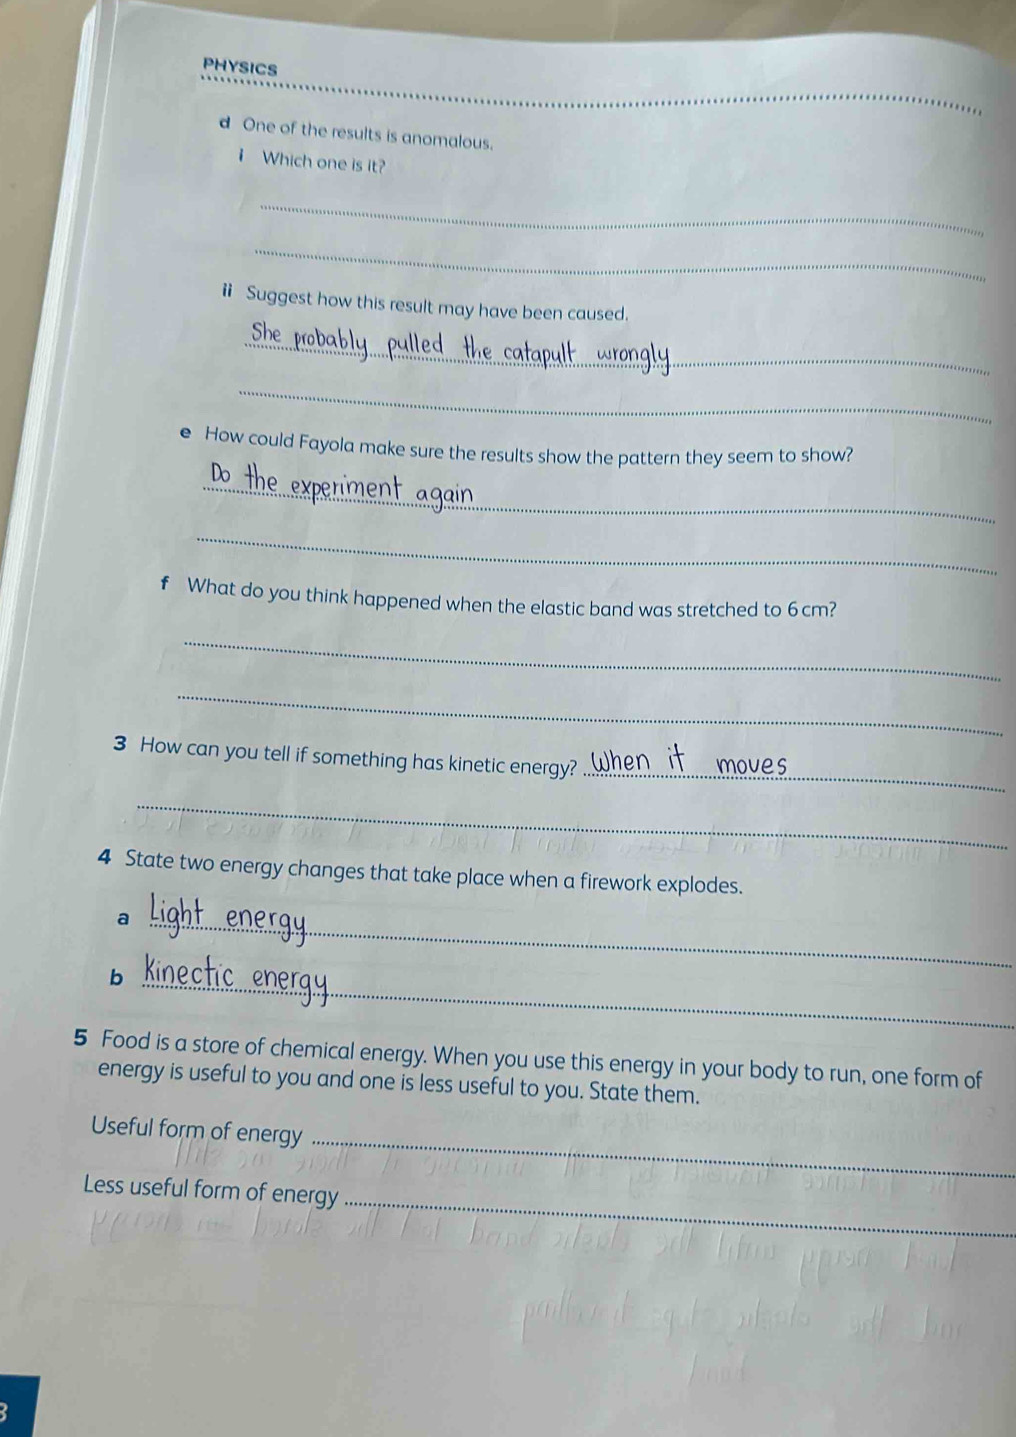 PHYSICS
d One of the results is anomalous.
i Which one is it?
ii Suggest how this result may have been caused.
She probably pulled the catapult wrongly
e How could Fayola make sure the results show the pattern they seem to show?
Do the experiment again
f What do you think happened when the elastic band was stretched to 6 cm?
3 How can you tell if something has kinetic energy? When it moves
4 State two energy changes that take place when a firework explodes.
a Light energy
b kinectic energy
5 Food is a store of chemical energy. When you use this energy in your body to run, one form of
energy is useful to you and one is less useful to you. State them.
Useful form of energy
Less useful form of energy